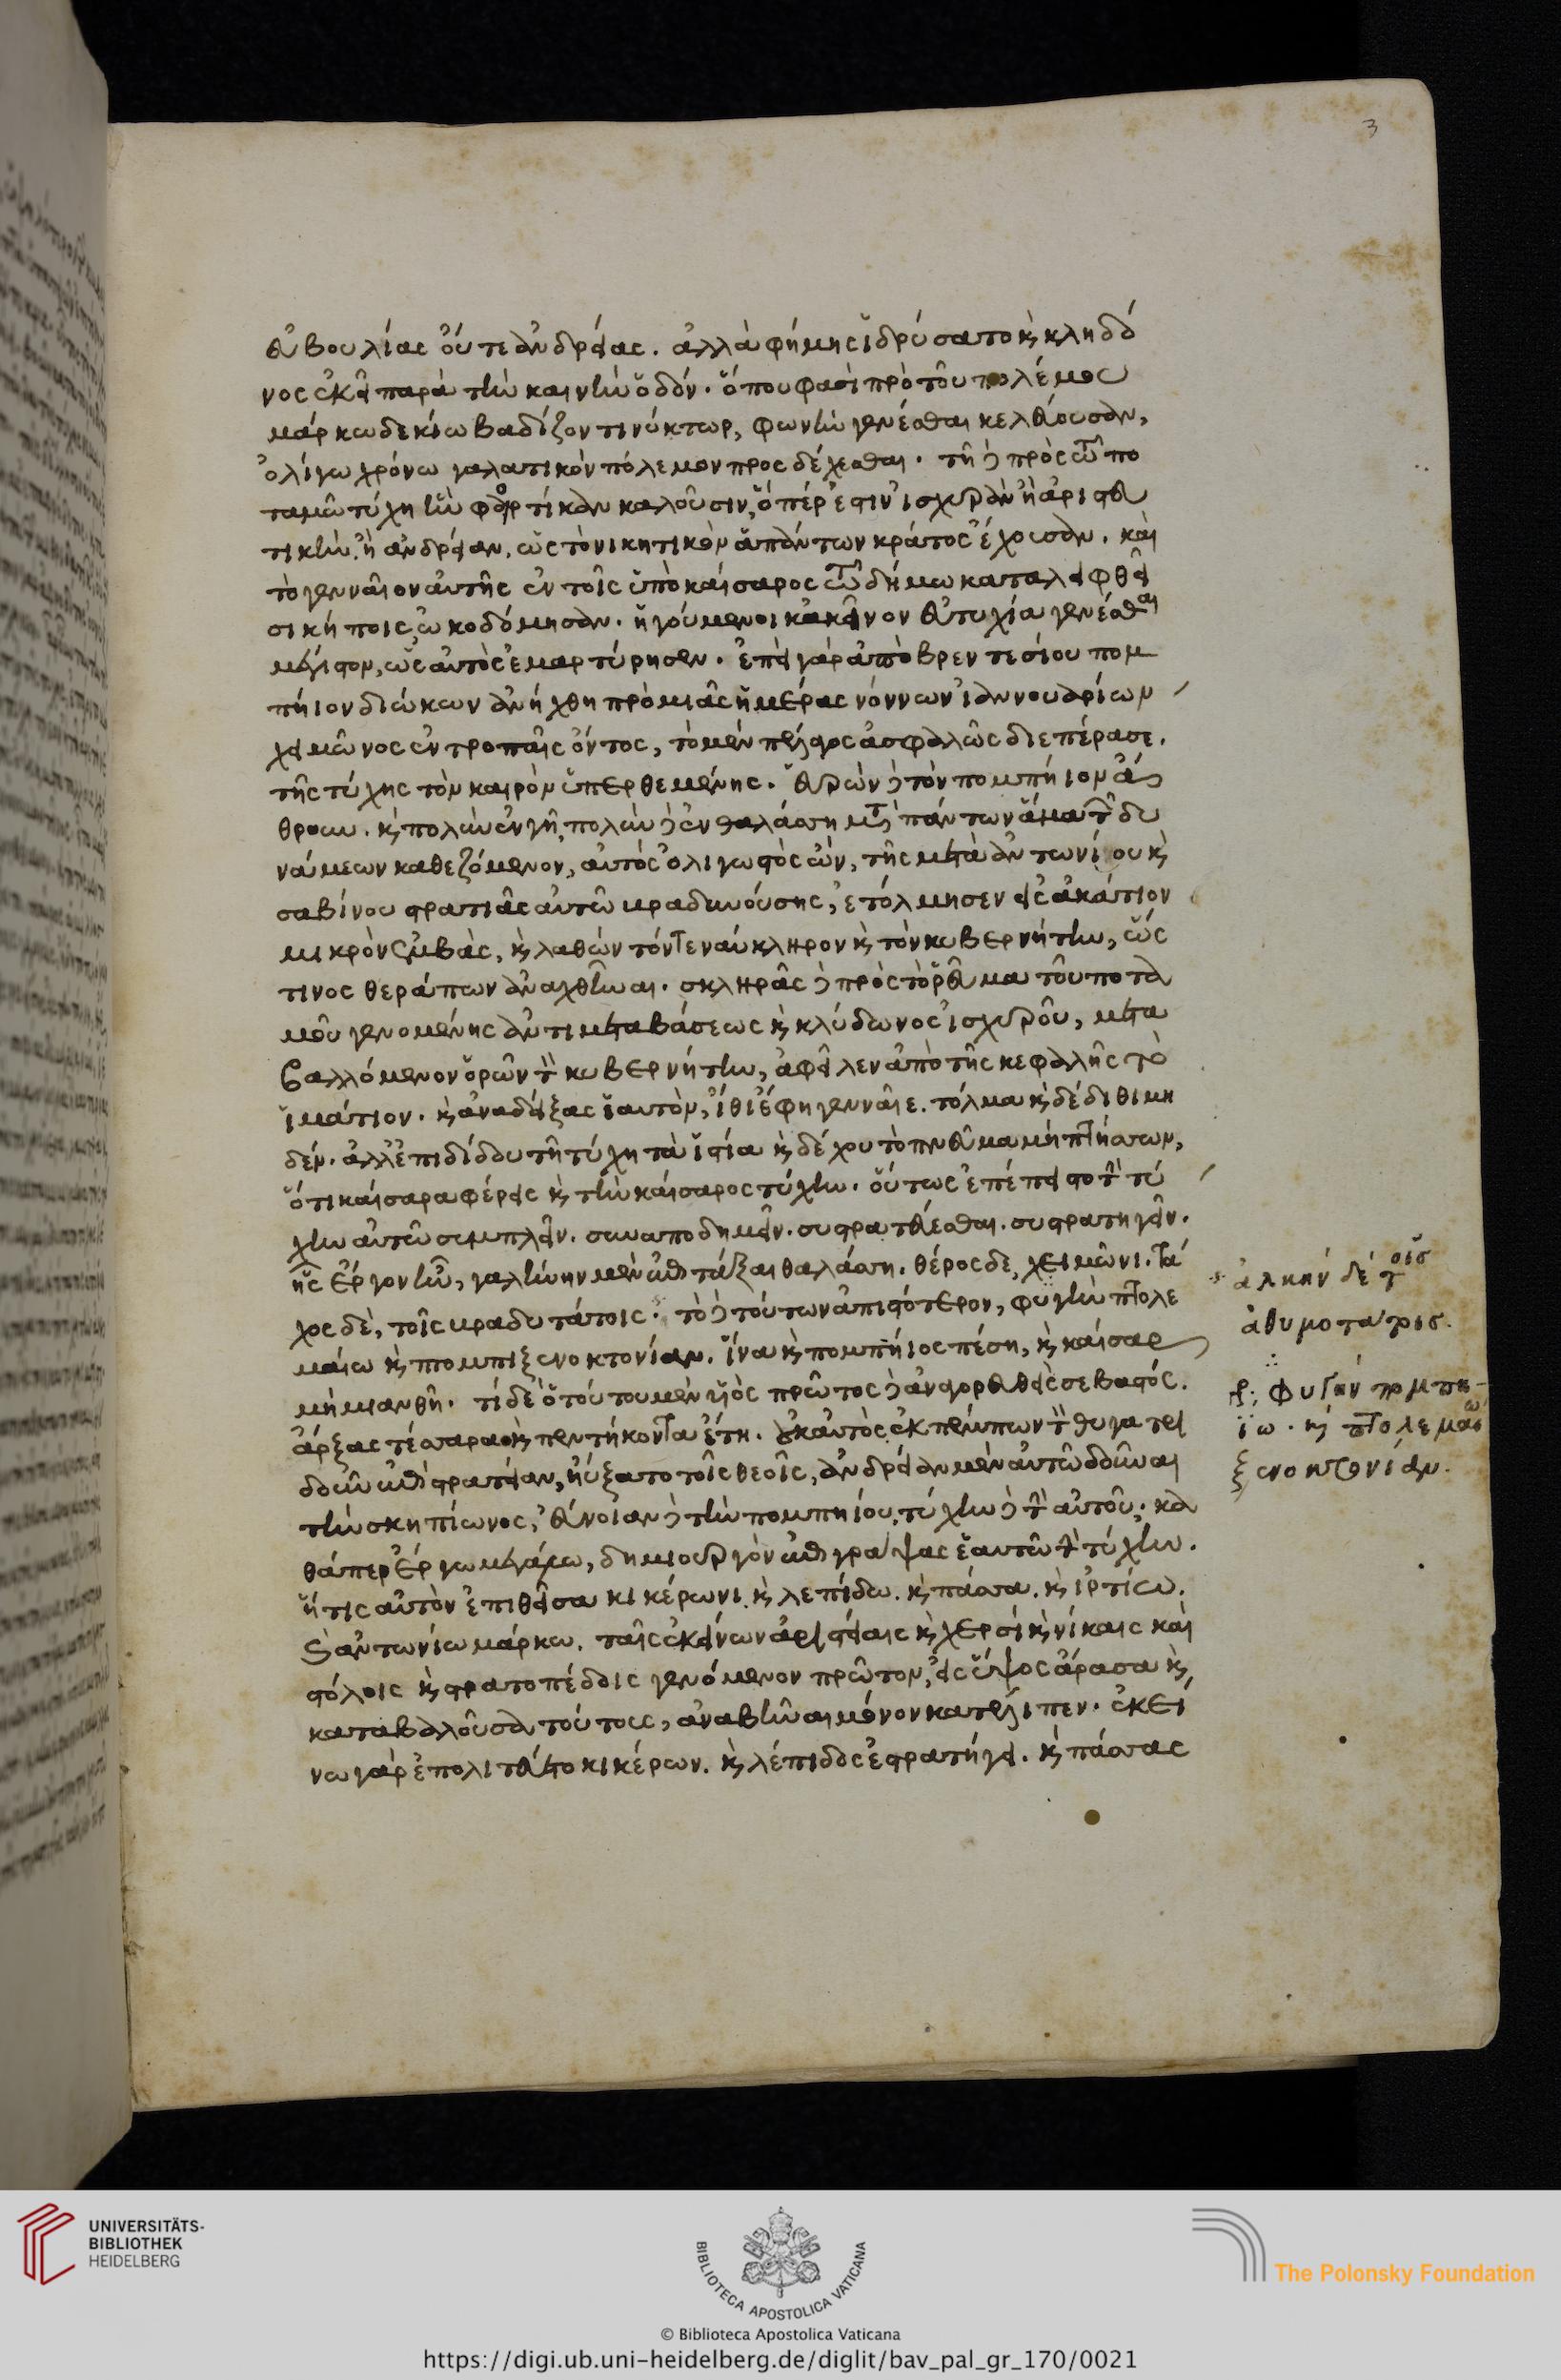 3
εὐβουλίας οὔτε ἀνδρείας. ἀλλὰ φήμης ἱδρύσατο κ κληδό
νος ἐκεῖ παρὰ τὴν καινὴν ὁδόν. ὅπου φασὶ πρὸ τοῦ πολέμου
μάρκω δεκίω βαδίζοντι νύκτωρ, φωνὴν γενέσθαι κελεύουσαν,
ὀλίγω χρόνω γαλατικὸν πόλεμον προσδέχεσθαι. τὴν δὲ πρὸς τῶ πο
ταμῶ τύχην ἣν φόρτικαν καλοῦσιν, ὅπέρ ἐστιν ἰσχυρὰν ἢ ἀριστευ
τικὴν, ἢ ἀνδρείαν, ὡς τὸ νικητικὸν ἁπάντων κράτος ἔχουσαν. καὶ
τὸ γενναῖον αὐτῆς ἐν τοῖς ὑπὸ καίσαρος τῶ δήμω καταλειφθεῖ
σι κήποις ὠκοδόμησαν. ἡγούμενοι κἀκεῖνον εὐτυχία γενέσθαι
μέγιστον, ὡς αὐτὸς ἐμαρτύρησεν. ἐπεὶ γὰρ ἀπὸ βρεντεσίου πομ
πήιον διώκων ἀνήχθη πρὸ μιᾶς ἡμέρας νόννων ἰαννουαρίων
χειμῶνος ἐν τροπαῖς ὄντος, τὸ μὲν πέλαγος ἀσφαλῶς διεπέρασε.
τῆς τύχης τὸν καιρὸν ὑπερθεμένης. εὑρὼν δὲ τὸν πομπήιον ἀ
θροῦν. κ πολὺν ἐν γῆ, πολὺν δὲ ἐν θαλάσση μετὰ πάντων ἅμα τῶν δυ
νάμεων καθεζόμενον, αὐτὸς ὀλιγωστὸς ὢν, τῆς μετὰ ἀντωνίου κ
σαβίνου στρατιᾶς αὐτῶ βραδυνούσης, ἐτόλμησεν εἰς ἀκάτιον
μικρὸν ἐμβὰς, κ λαθὼν τόν τε ναύκληρον κ τὸν κυβερνήτην, ὥς
τινος θεράπων ἀναχθῆναι. σκληρᾶς δὲ πρὸς τὸ ῥεῦμα τοῦ ποτα
μοῦ γενομένης ἀντιμεταβάσεως κ κλύδωνος ἰσχυροῦ, μετα
βαλλόμενον ὁρῶν τὸν κυβερνήτην, ἀφεῖλεν ἀπὸ τῆς κεφαλῆς τὸ
ἱμάτιον. κ ἀναδείξας ἑαυτὸν, ἴθι ἔφη γενναῖε. τόλμα κ δέδιθι μη
δέν. ἀλλ ἐπιδίδου τῆ τύχη τὰ ἱστία κ δέχου τὸ πνεῦμα μὴ πτήσσων,
ὅτι καίσαρα φέρεις κ τὴν καίσαρος τύχην. οὕτως ἐπέπειστο τὴν τύ
χην αὐτῶ συμπλεῖν. συναποδημεῖν. συστρατεύεσθαι. συστρατηγεῖν.
ἧς ἔργον ἦν, γαλήνην μὲν ἐπιτάξαι θαλάσση. θέρος δὲ, χειμῶνι. τά
χος δὲ, τοῖς βραδυτάτοις. τὸ δὲ τούτων ἀπιστότερον, φυγὴν πτολε
μαίω κ πομπιξενοκτονίαν. ἵνα κ πομπήιος πέση, κ καίσαρ
μὴ μιανθῆ. τί δὲ ὁ τούτου μὲν υἱὸς πρῶτος δὲ ἀναγορευθεὶς σεβαστός.
ἄρξας τέσσαρα κ πεντήκοντα ἔτη. οὐκ αὐτὸς ἐκπέμπων τὸν θυγατρι
δοῦν ἐπὶ στρατείαν, ηὔξατο τοῖς θεοῖς, ἀνδρείαν μὲν αὐτῶ δοῦναι
τὴν σκηπίωνος, εὔνοιαν δὲ τὴν πομπηίου, τύχην δὲ τὴν αὐτοῦ. κα
θάπερ ἔργω μεγάλω, δημιουργὸν ἐπιγράψας ἑαυτῶ τὴν τύχην.
ἥτις αὐτὸν ἐπιθεῖσα κικέρωνι. κ λεπίδω. κ πάνσα. κ ἱρτίω.
κ ἀντωνίω μάρκω. ταῖς ἐκείνων ἀριστείαις κ χερσὶ κ νίκαις καὶ
στόλοις κ στρατοπέδοις γενόμενον πρῶτον, εἰς ὕψος ἄρασα κ
καταβαλοῦσα τούτους, ἀναβῆναι μόνον κατέλιπεν. ἐκεί
νω γὰρ ἐπολιτεύετο κικέρων. κ λέπιδος ἐστρατήγει. κ πάνσας
ἀλκὴν δέ τοῖς
ἀθυμοτάτοις.
φυγὴν πομπη-
ίω. κ πτολεμαίω
ξενοκτονίαν.
UNIVERSITÄTS-
BIBLIOTHEK
HEIDELBERG
BIBLIOTECA APOSTOLICA VATICANA
© Biblioteca Apostolica Vaticana
The Polonsky Foundation
https://digi.ub.uni-heidelberg.de/diglit/bav_pal_gr_170/0021